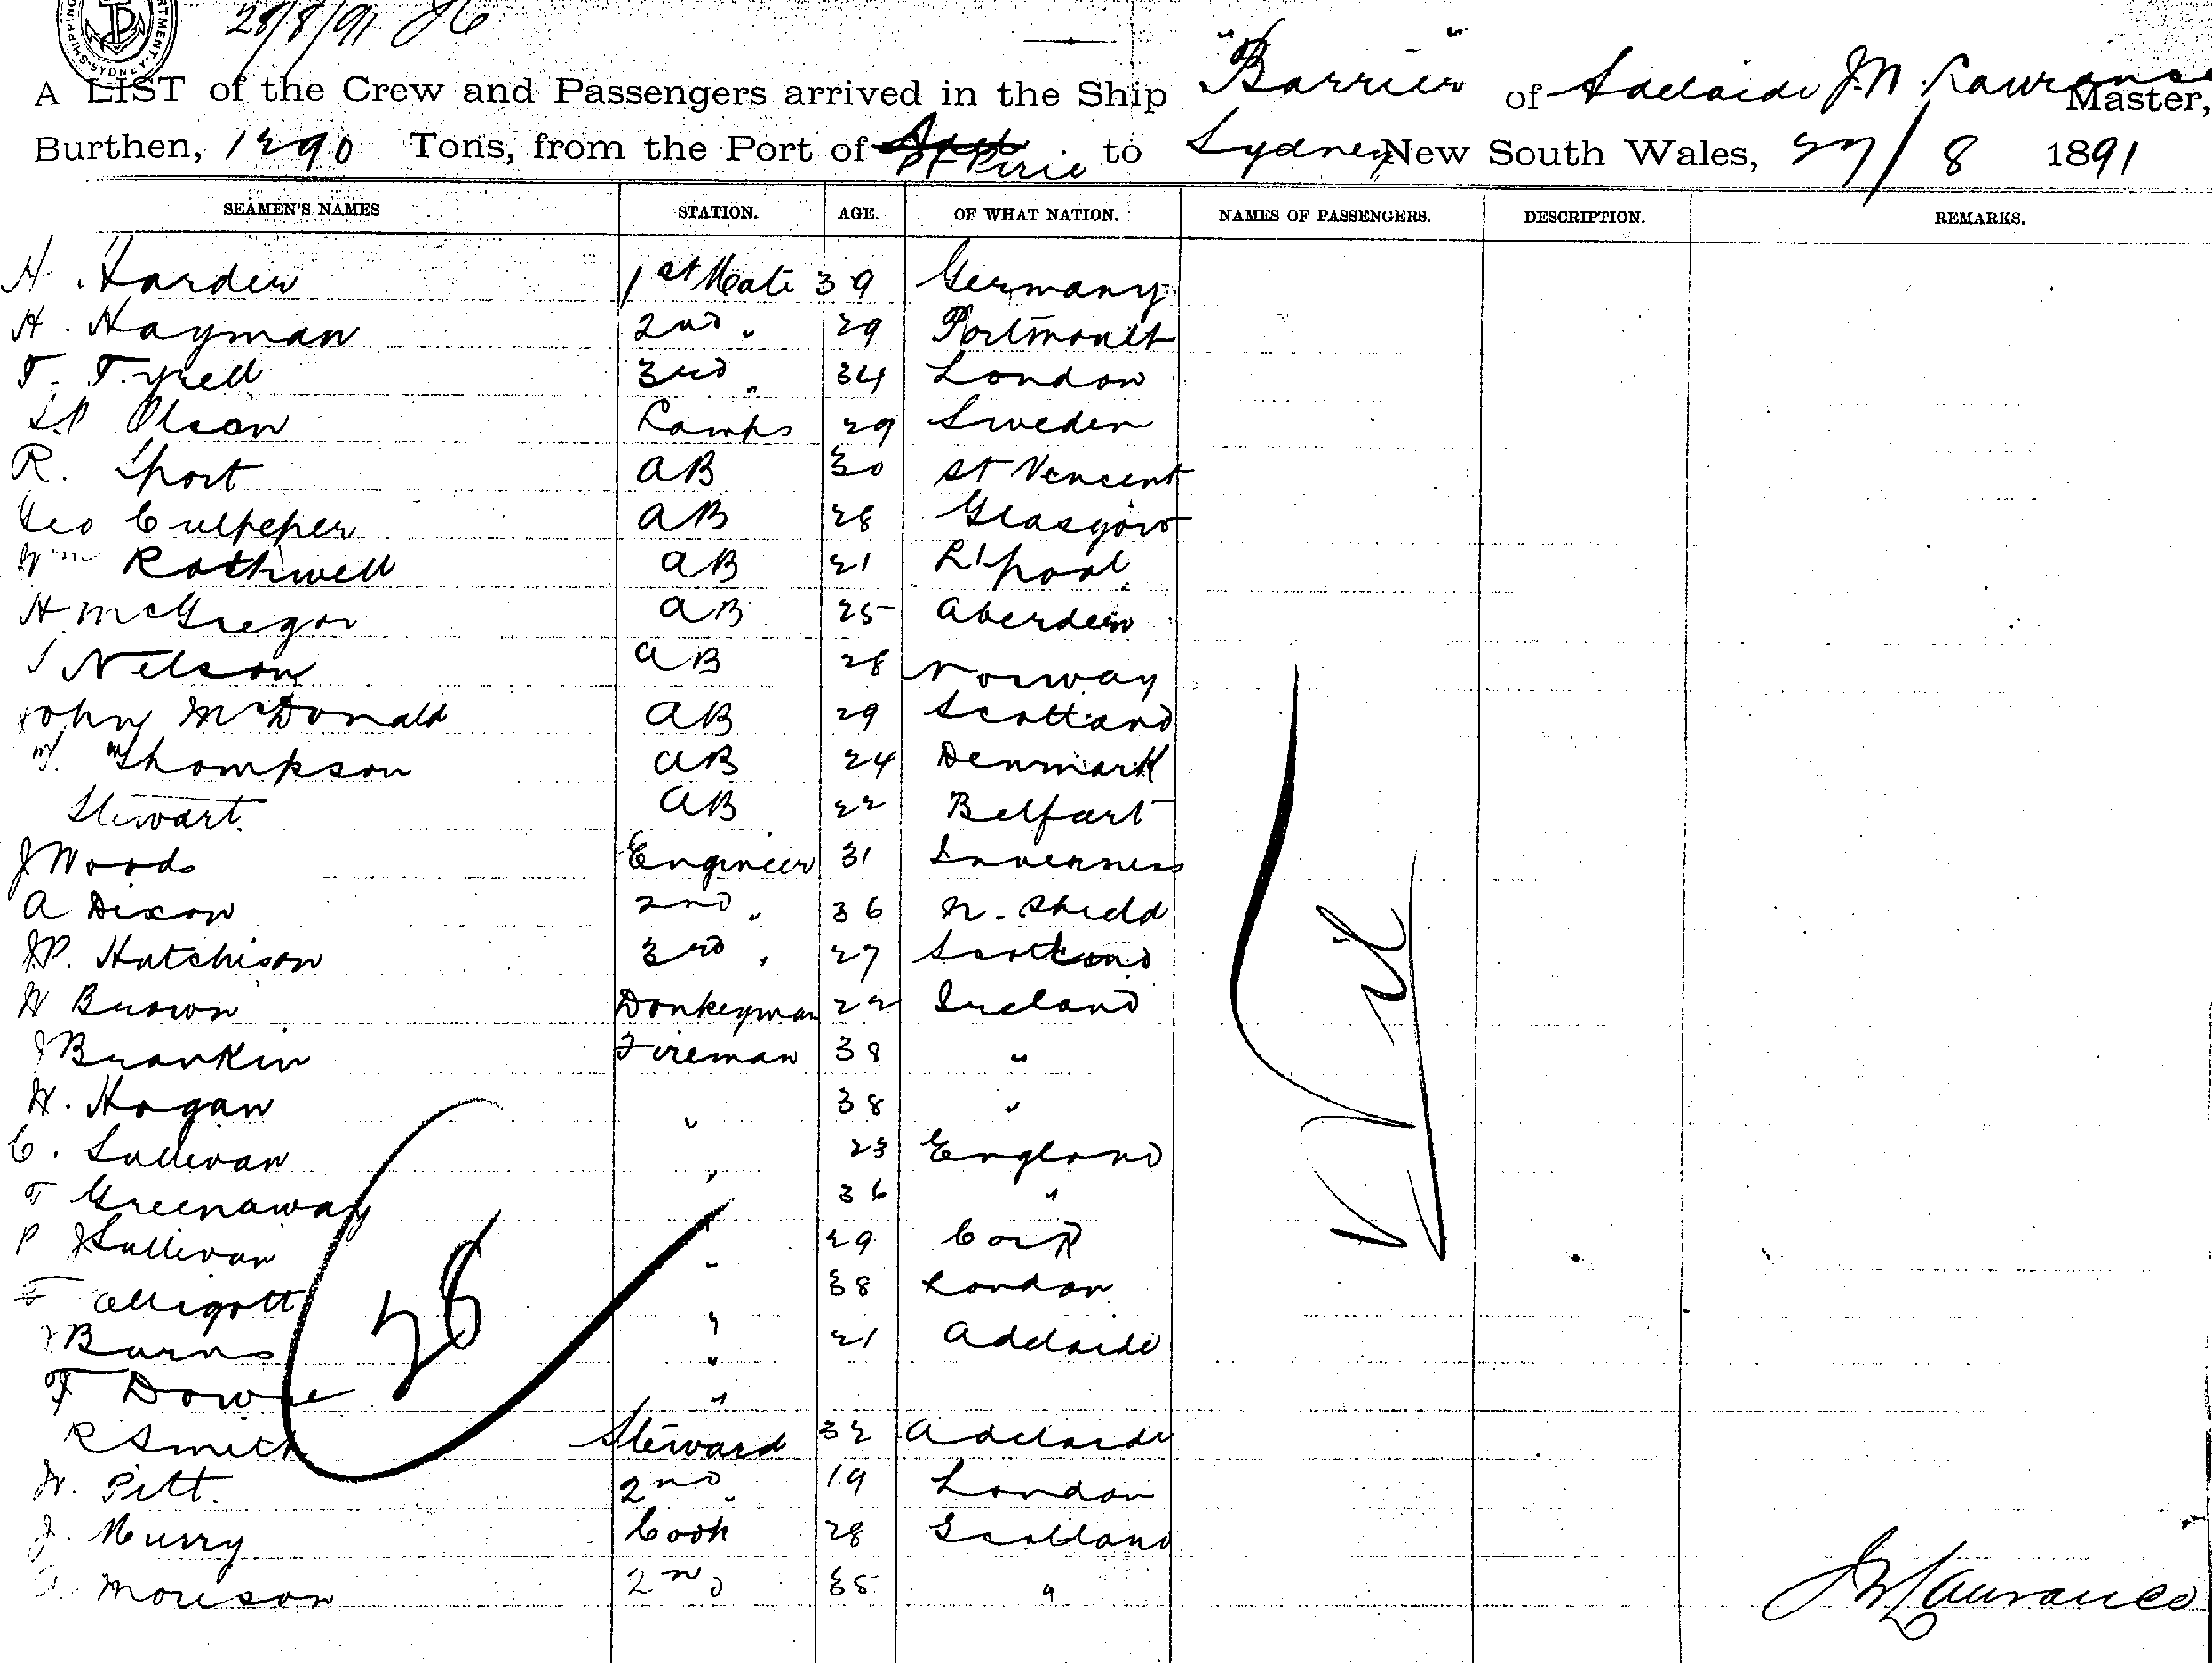 28/8/91
A LIST of the Crew and Passengers arrived in the Ship "Barrier" of Adelaide J.N. Lawrance Master,
Burthen, 1290 Tons, from the Port of Pt Pirie to Sydney New South Wales, 27/8 1891
SEAMEN'S NAMES STATION. AGE. OF WHAT NATION. NAMES OF PASSENGERS. DESCRIPTION. REMARKS.
H. Harden 1st Mate 39 Germany
H. Hayman 2nd " 29 Portmoult
T. Tyrell 3rd " 34 London
Olson Lamps 29 Sweden
R. Short AB 30 St Vencent
Geo Culpeper AB 28 Glasgow
Wm Rothwell AB 21 L'pool
H. McGregor AB 25 Aberdeen
Nelson AB 28 Norway
John McDonald AB 29 Scotland
Thompson AB 24 Denmark
Stewart AB 22 Belfast
J Woods Engineer 31 Inverness
A Dixon 2nd " 36 N. Shield
JP. Hutchison 3rd " 27 Scotland
W Brown Donkeyman 22 Ireland
J Brankin Fireman 38 "
W. Hogan " 38 "
C. Sullivan " 23 England
T Greenaway " 36 "
P Sullivan " 29 Cork
Elligott " 38 London
Burns " 21 Adelaide
"
F Downe "
R Smith Steward 32 Adelaide
W. Pitt. 2nd " 19 London
J. Murry Cook 28 Scotland
Morison 2nd 35 "
28
Nil
J N Lawrance